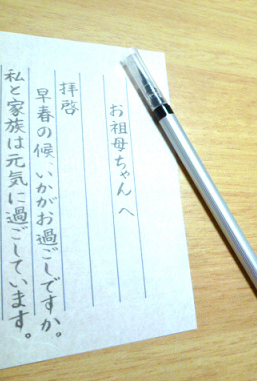 お祖母ちゃんへ
拝啓
早春の候、いかがお過ごしですか。
私と家族は元気に過ごしています。